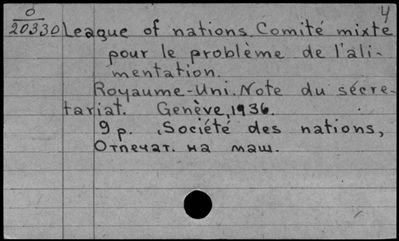 4
O
20330 League of nations. Comité mixte
pour le problème de l'ali-
mentation.
Royaume-Uni. Note du sécre-
tariat. Genève, 1936.
9 p. , Société des nations,
Отпечат. на маш.